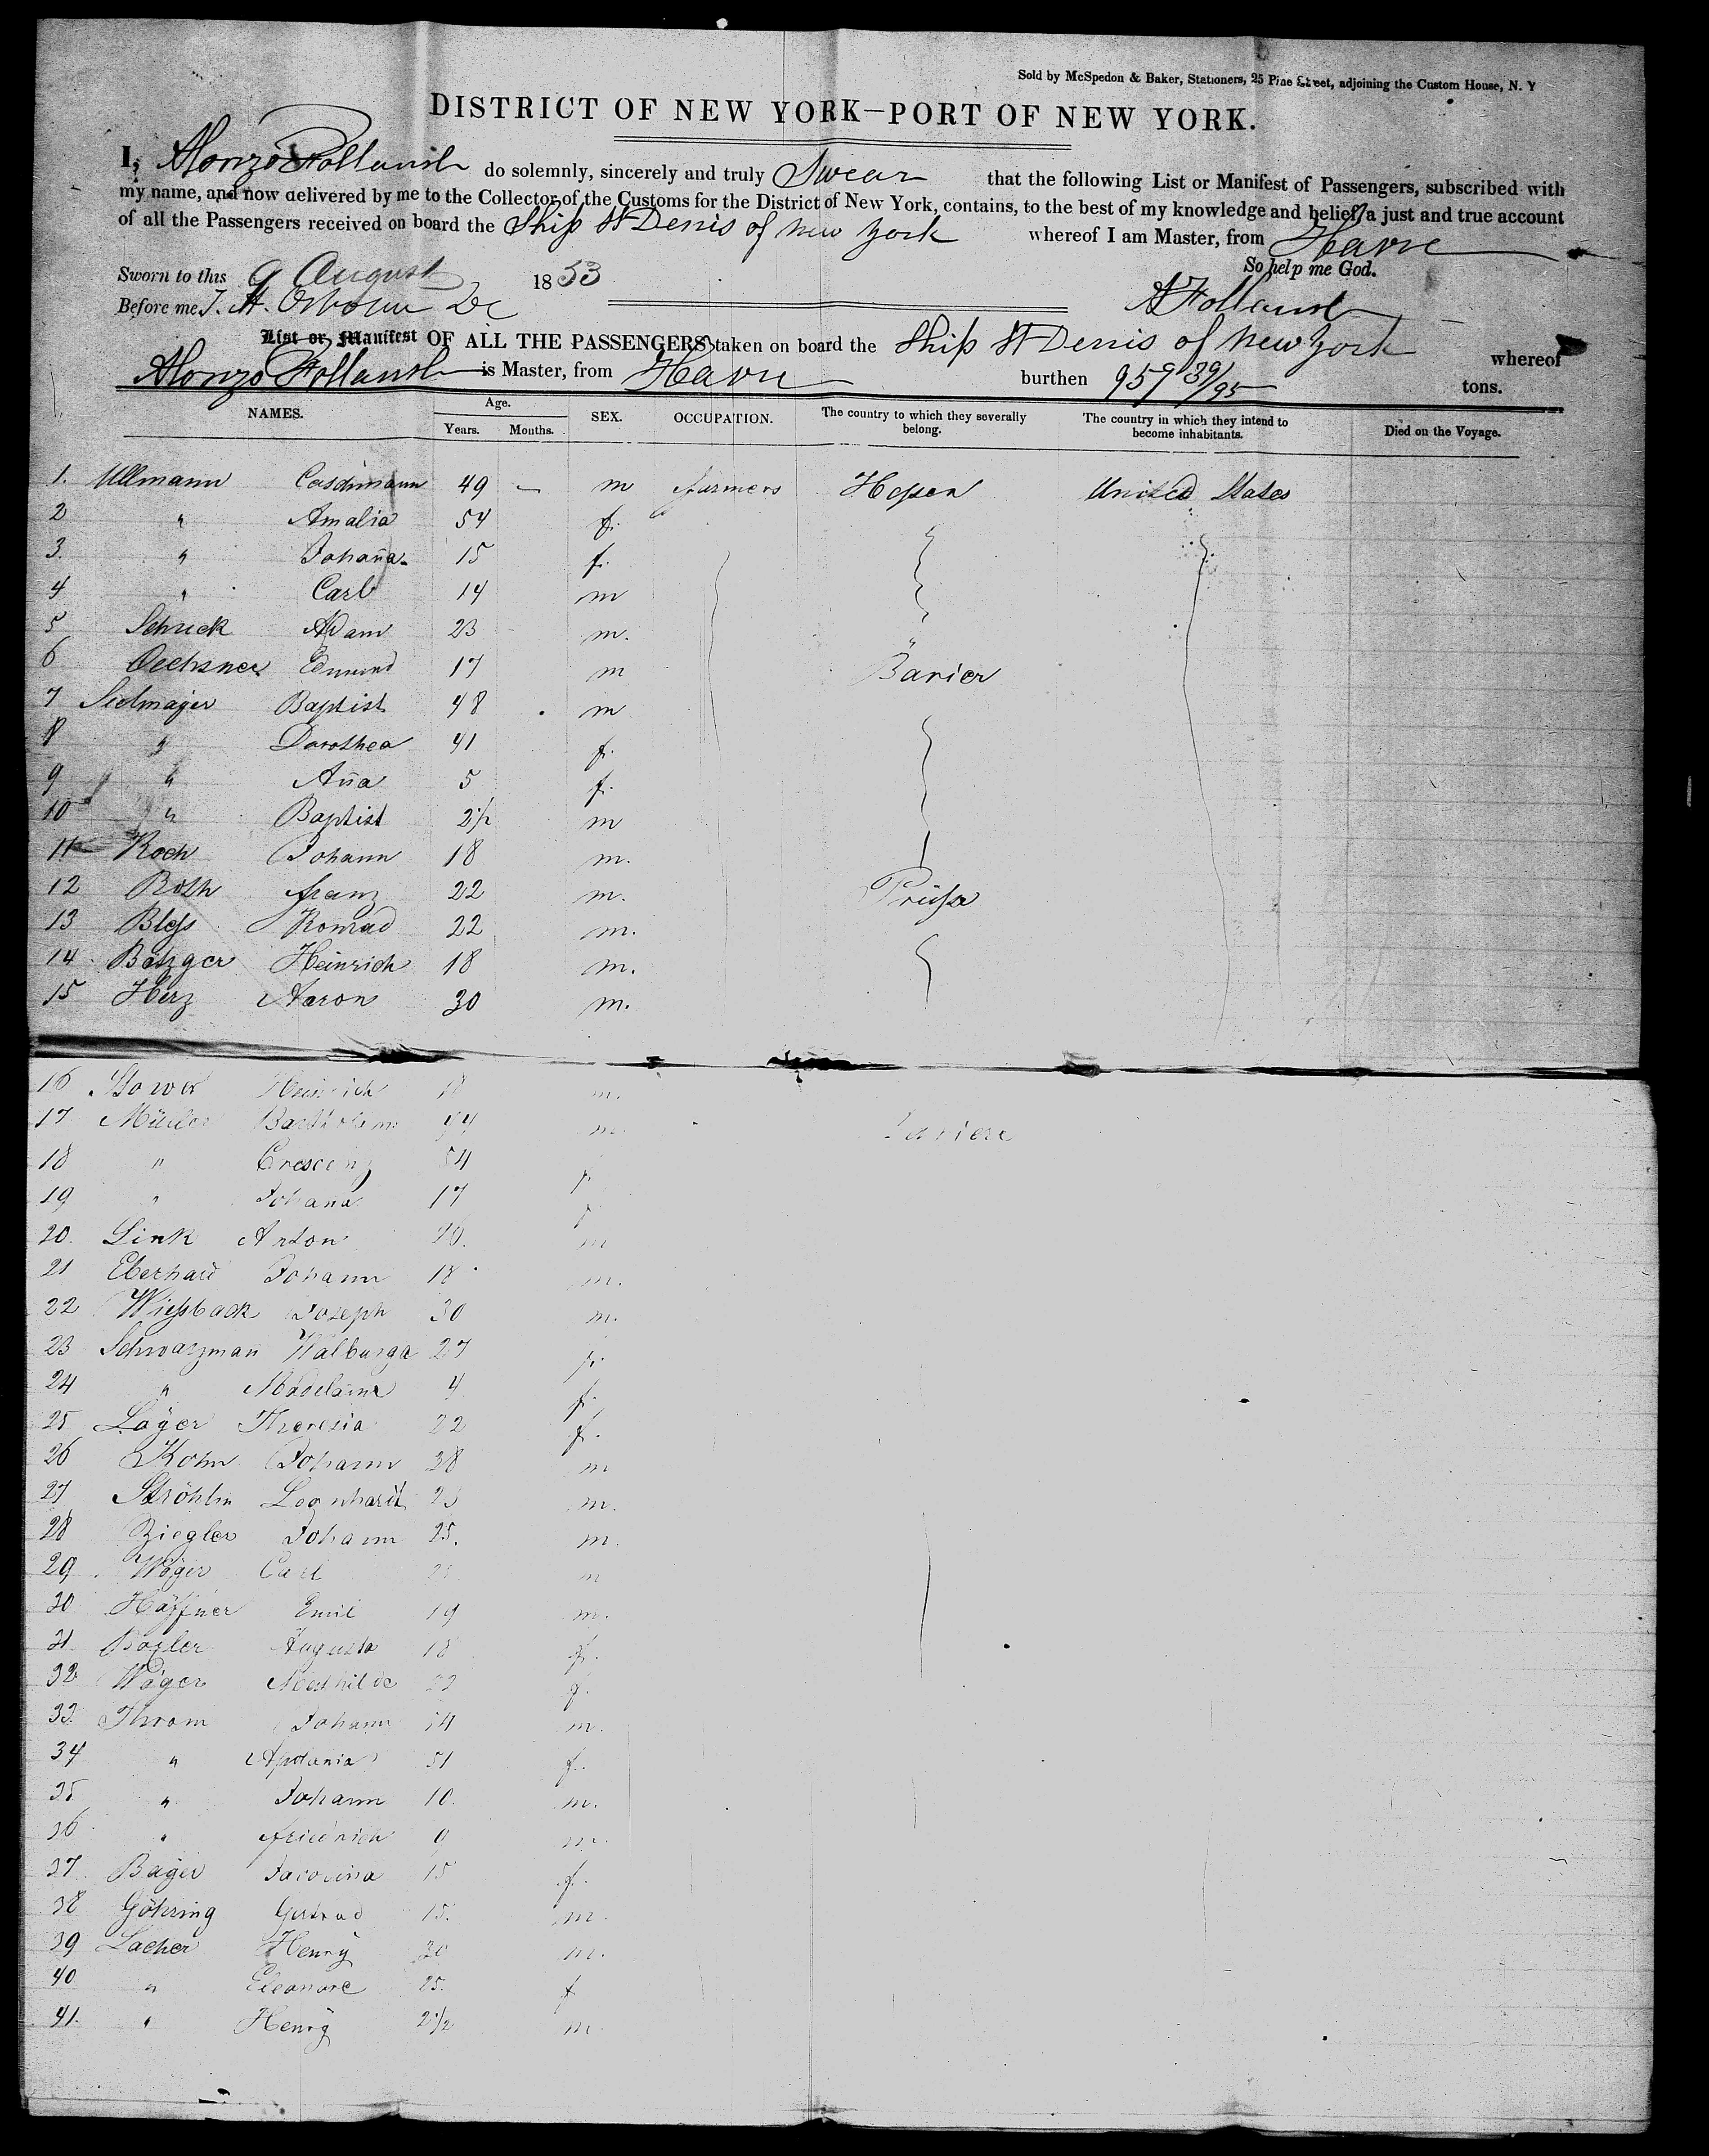 Sold by McSpedon & Baker, Stationers, 25 Pine Street, adjoining the Custom House, N. Y
DISTRICT OF NEW YORK—PORT OF NEW YORK.
I, Alonzo Follansb do solemnly, sincerely and truly Swear that the following List or Manifest of Passengers, subscribed with
my name, and now delivered by me to the Collector of the Customs for the District of New York, contains, to the best of my knowledge and belief, a just and true account
of all the Passengers received on board the Ship St Denis of New York whereof I am Master, from Havre
So help me God.
Sworn to this 9 August 1853
Before me A Follansb
List or Manifest OF ALL THE PASSENGERS taken on board the Ship St Denis of New York whereof
Alonzo Follansb is Master, from Havre burthen 959 39/95 tons.
NAMES. Age. SEX. OCCUPATION. The country to which they severally belong. The country in which they intend to become inhabitants. Died on the Voyage.
Years. Months.
1. Ullmann 49 – m farmers Hessen United States
2 " Amalia 54 f.
3. " Johan̄a 15 f.
4 " Carl 14 m
5 Schuck Adam 23 m. "
6 Oechsner Edmund 17 m Barier
7 Sedmajer Baptist 48 m
8 " Dorothea 41 f.
9 " An̄a 5 f.
10 " Baptist 2 1/2 m
11 Koch Johann 18 m.
12 Roth franz 22 m. Prussa
13 Bless Konrad 22 m.
14. Bötzger Heinrich 18 m.
15 Herz Aaron 30 m.
16 Heinrich 18 m.
17 Müller 44 m.
18 " Crescenz 54 f.
19 " Johana 17 f
20. Link Anton m
21 Eberhard Johann 18 m.
22 Wiessback Joseph 30 m.
23 Schwarzman̄ Walburga 27 f.
24 " 4 f.
25 Läger Theresia 22 f.
26 Kohn Johann 28 m
27 Ströhlin Leonhardt m.
28 Ziegler Johann 25. m.
29 Wäger Carl m
30 Häffner Emil 19 m.
31. Augusta 18 f.
32 Wäger Mathilde f.
33. Throm Johann 54 m.
34 " Apolania 51 f.
35 " Johann 10. m.
36 " friedrich 9 m.
37 Bager Jacobina 15 f.
38 Göhring Gertrud 15. m.
39 Lacher Henry 30 m.
40 " Eleanore 25. f
41. " Henry 2 1/2 m.